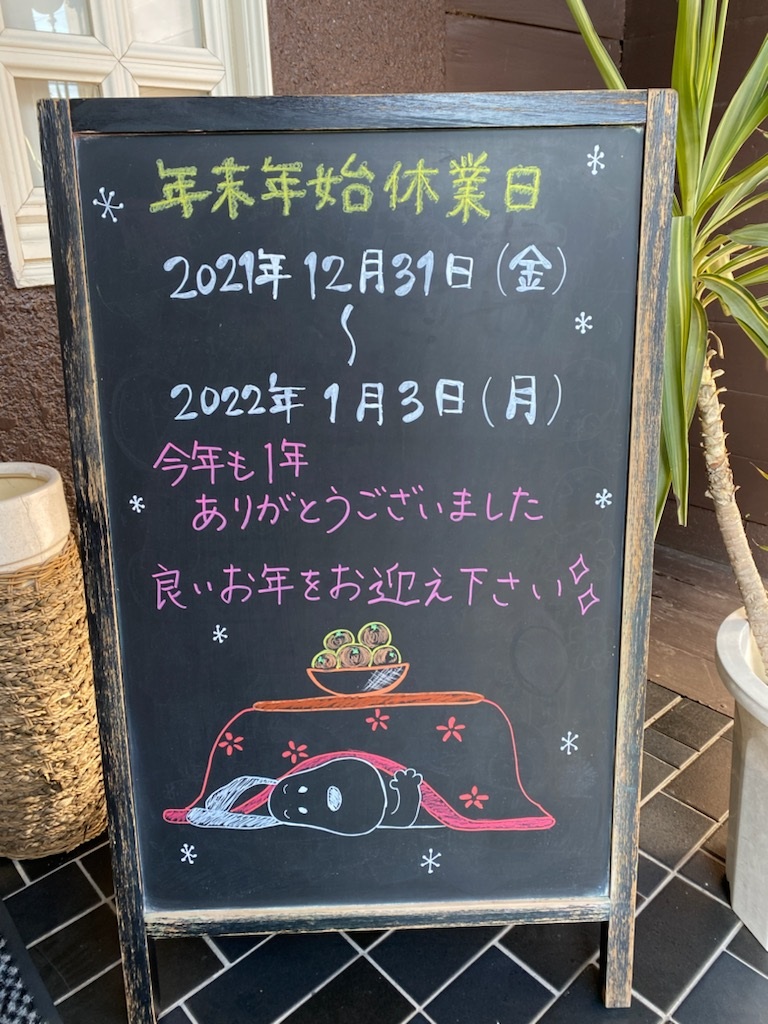 年末年始休業日
2021年12月31日(金)
〜
2022年1月3日(月)
今年も1年
ありがとうございました
良いお年をお迎え下さい